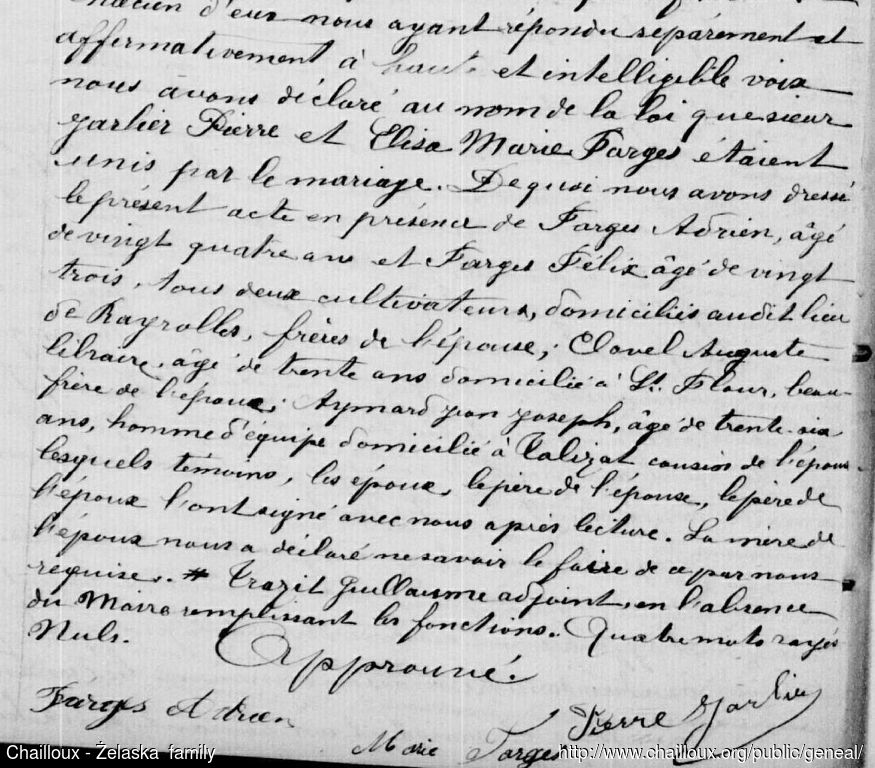 chacun d'eux nous ayant répondu séparément et
affirmativement à haute et intelligible voix
nous avons déclaré au nom de la loi que sieur
Jarlier Pierre et Elisa Marie Farges étaient
unis par le mariage. De quoi nous avons dressé
le présent acte en présence de Farges Adrien, âgé
de vingt quatre ans et Farges Félix âgé de vingt
trois, tous deux cultivateurs, domiciliés audit lieu
de Rayrolles, frères de l'épouse; Clavel Auguste
libraire, âgé de trente ans domicilié à St. Flour, beau-
frère de l'époux; Aymard Jean Joseph, âgé de trente six
ans, homme d'équipe domicilié à Talizat cousin de l'époux.
lesquels témoins, les époux, le père de l'épouse, le père de
l'époux l'ont signé avec nous après lecture. La mère de
l'époux nous a déclaré ne savoir le faire de ce par nous
requise. # Trazit Guillaume adjoint, en l'absence
du Maire remplissant les fonctions. Quatre mots rayés
Nuls.
Approuvé.
Farges Adrien
Pierre Jarlier
Marie Farges
Chailloux - Żelaska family
http://www.chailloux.org/public/geneal/